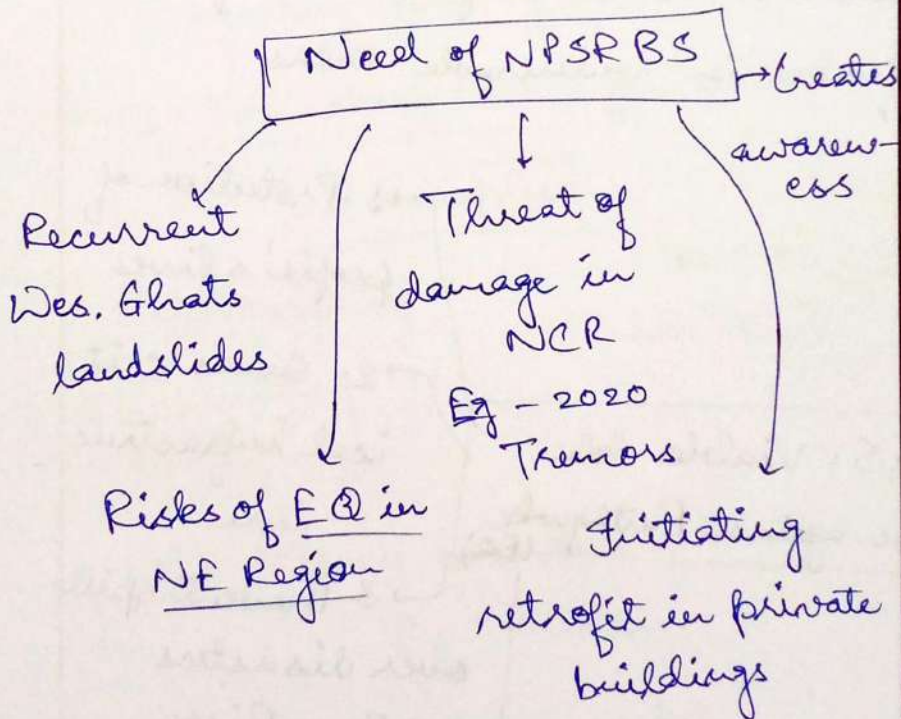 Need of NPSRBS
→ Creates
awaren-
ess
Recurrent
Wes. Ghats
landslides
Threat of
damage in
NCR
Eg - 2020
Tremors
Risks of EQ in
NE Region
Initiating
retrofit in private
buildings